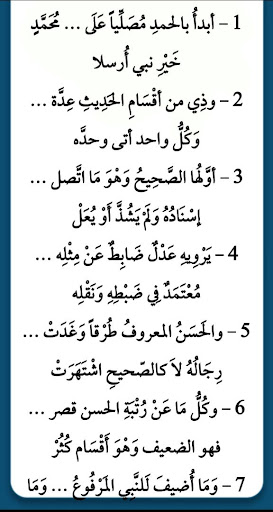 1 – أبدأُ بالحمدِ مُصَلِّياً عَلَى ... مُحَمَّدٍ
خَيْرِ نبي أُرسلا
2 – وذِي من أقْسَامِ الحَدِيثِ عِدَّة ...
وَكُلُّ واحد أتى وحدَّه
3 – أوَّلُها الصَّحِيحُ وَهْوَ مَا اتَّصل ...
إسْنَادُهُ وَلَمْ يَشُذَّ أَوْ يُعَلْ
4 – يَرْوِيهِ عَدْلٌ ضَابِطٌ عَنْ مِثْلِه ...
مُعْتَمَدٌ فِي ضَبْطِهِ وَنَقْلِه
5 – والحَسَنُ المعروفُ طُرْقاً وَغَدَتْ ...
رِجَالُهُ لاَ كالصّحيحِ اشْتَهَرَتْ
6 – وكُلُّ مَا عَنْ رُتْبَةِ الحسن قصر ...
فهو الضعيف وَهْوَ أَقْسَام كُثُرْ
7 – وَمَا أُضيفَ لَلنَّبِي المَرْفُوعُ ... وَمَا